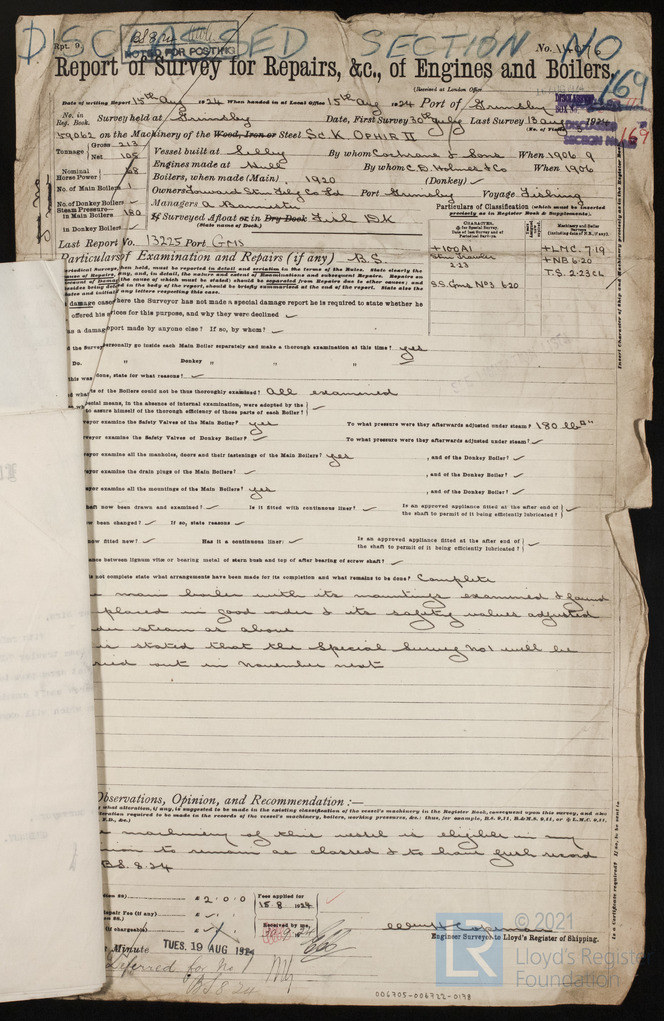 DISCLASSED SECTION NO 169
Rpt. 9.
BS 8.24
NOTED FOR POSTING
No. 14076
Report of Survey for Repairs, &c., of Engines and Boilers.
(Received at London Office
Date of writing Report 15th Aug 1924 When handed in at Local Office 15th Aug 1924 Port of Grimsby
No. in Reg. Book. Survey held at Grimsby Date, First Survey 30th July Last Survey 13 Aug 1924
(No. of Visits
59062 on the Machinery of the Wood, Iron or Steel Sc. K. OPHIR II
Tonnage Gross 213
Net 105
Vessel built at Selby By whom Cochrane & Sons When 1906 9
Engines made at Hull By whom C.D. Holmes & Co When 1906
Nominal Horse Power 68
Boilers, when made (Main) 1920 (Donkey) ✓
No. of Main Boilers 1
Owners Forward Stm Fshg Co Ld Port Grimsby Voyage Fishing
No. of Donkey Boilers ✓
Managers A Bannister
Steam Pressure in Main Boilers 180
If Surveyed Afloat or in Dry Dock Fish DK
(State name of Dock.)
in Donkey Boilers ✓
Particulars of Classification (which must be inserted precisely as in Register Book & Supplements).
Last Report No. 13225 Port Gms
+100A1
Stm Trawler
2.23
S.S. Gms No3 6.20
+LMC. 7.19
+NB 6.20
T.S. 2.23 CL
Particulars of Examination and Repairs (if any) B.S.
damage cases where the Surveyor has not made a special damage report he is required to state whether he
offered his services for this purpose, and why they were declined ✓
as a damage report made by anyone else? If so, by whom? ✓
d the Surveyor personally go inside each Main Boiler separately and make a thorough examination at this time? yes
Do. " Donkey " " " ✓
this was done, state for what reasons? ✓
d what parts of the Boilers could not be thus thoroughly examined? All examined
special means, in the absence of internal examination, were adopted by the
to assure himself of the thorough efficiency of those parts of each Boiler? ✓
veyor examine the Safety Valves of the Main Boiler? yes To what pressure were they afterwards adjusted under steam? 180 lb□"
rveyor examine the Safety Valves of Donkey Boiler? ✓ To what pressure were they afterwards adjusted under steam? ✓
veyor examine all the manholes, doors and their fastenings of the Main Boilers? yes , and of the Donkey Boiler? ✓
eyor examine the drain plugs of the Main Boilers? ✓ , and of the Donkey Boiler? ✓
eyor examine all the mountings of the Main Boilers? yes , and of the Donkey Boiler? ✓
haft now been drawn and examined? ✓ Is it fitted with continuous liner? ✓ Is an approved appliance fitted at the after end of the shaft to permit of it being efficiently lubricated? ✓
w been changed? ✓ If so, state reasons ✓
now fitted new? ✓ Has it a continuous liner? ✓ Is an approved appliance fitted at the after end of the shaft to permit of it being efficiently lubricated? ✓
ance between lignum vitæ or bearing metal of stern bush and top of after bearing of screw shaft? ✓
not complete state what arrangements have been made for its completion and what remains to be done? Complete
main boiler with its mountings examined & found
placed in good order & its safety valves adjusted
der steam as above
is stated that the Special Survey No1 will be
ried out in November next
Observations, Opinion, and Recommendation :—
machinery of this vessel is eligible in my
nion to remain as classed & to have fresh record
BS. 8.24
£ 2.0.0
Fees applied for
15.8 1924
Repair Fee (if any) £ ✓
(if chargeable)
Received by me,
Engineer Surveyor to Lloyd's Register of Shipping.
Minute TUES. 19 AUG 1924
Deferred for No 1
BS 8.24
006705-006722-0178
© 2021
LR
Lloyd's Register
Foundation